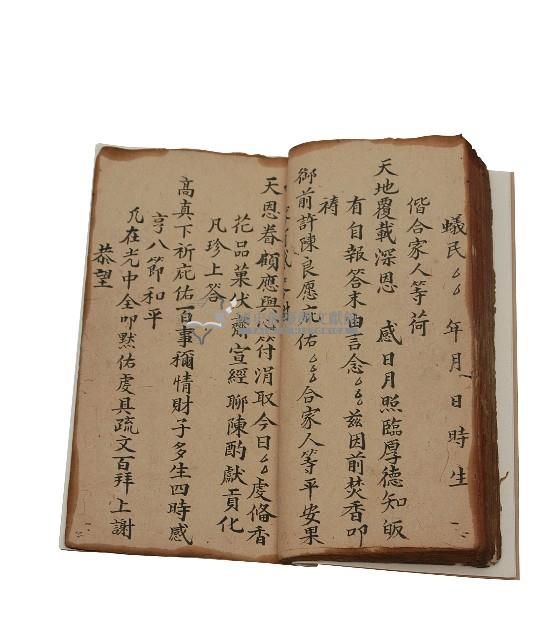 蟻民厶厶年月日時生
偕合家人等荷
天地覆載深恩 感日月照臨厚德知皈
有自報答末由言念厶厶茲因前焚香叩
禱
御前許陳良愿佑厶厶合家人等平安果
天恩眷顧應與符涓取今日厶厶虔俻香
花品菓伏齋宣經聊陳酌獻貢化
凡珍上答
高真下祈庇佑百事情財子多生四時感
亨八節和平
凡在光中全叩默佑虔具疏文百拜上謝
恭望